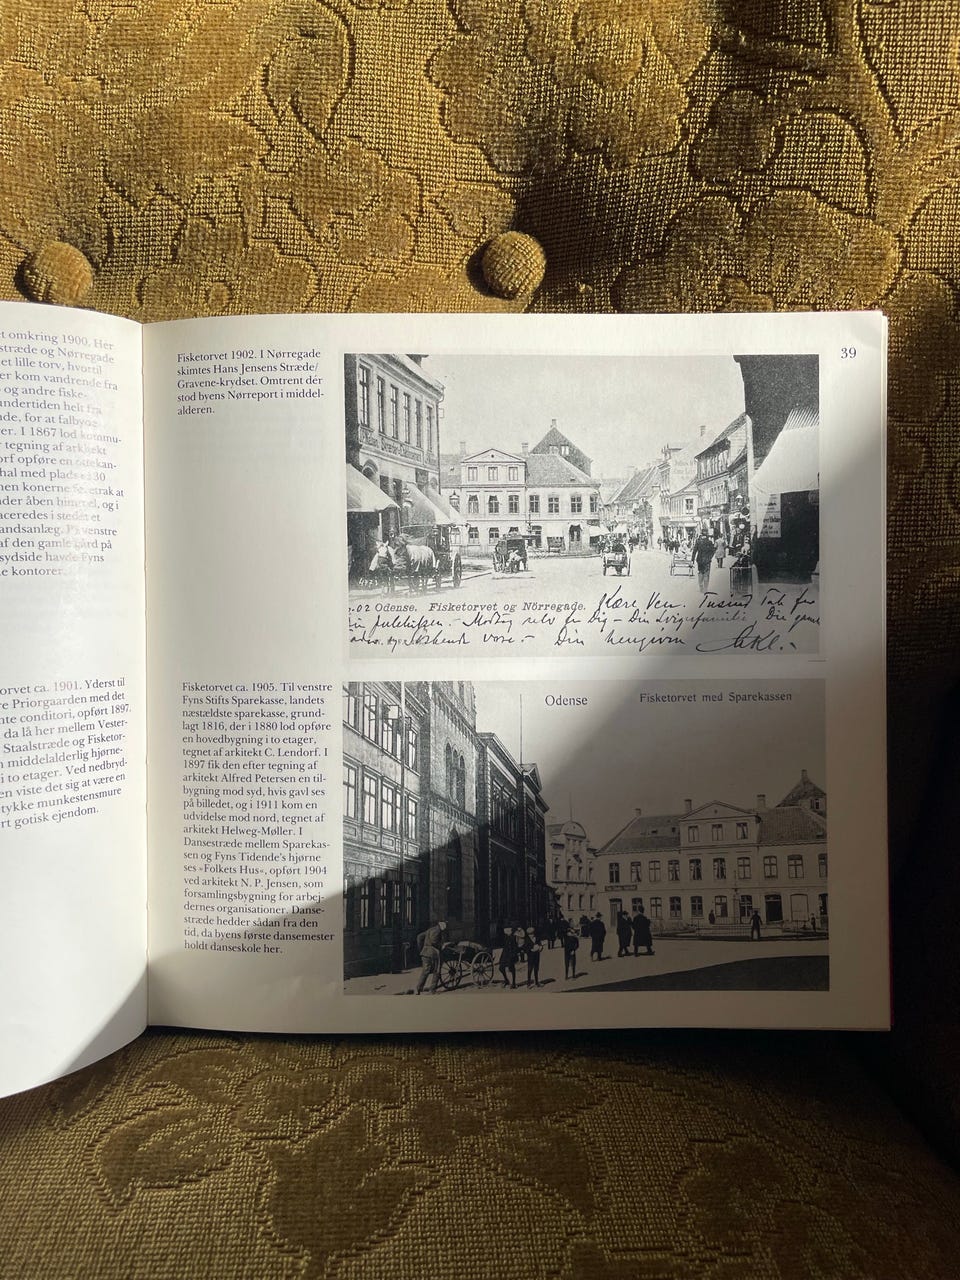 t omkring 1900. Her
stræde og Nørregade
et lille torv, hvortil
er kom vandrende fra
og andre fiske-
undertiden helt fra
nde, for at falby
er. I 1867 lod kommu-
tegning af arkitekt
orf opføre en ottekan-
hal med plads 130
men konerne foretrak at
nder åben himmel, og i
aceredes i stedet et
andsanlæg. På venstre
af den gamle gård på
sydside havde Fyns
e kontorer.
orvet ca. 1901. Yderst til
re Priorgaarden med det
nte conditori, opført 1897,
da lå her mellem Vester-
Staalstræde og Fisketor-
n middelalderlig hjørne-
i to etager. Ved nedbryd-
en viste det sig at være en
tykke munkestensmure
rt gotisk ejendom.
39
Fisketorvet 1902. I Nørregade
skimtes Hans Jensens Stræde/
Gravene-krydset. Omtrent dér
stod byens Nørreport i middel-
alderen.
.02 Odense. Fisketorvet og Nörregade. Kære Ven. Tusind Tak for
Julehilsen. – Modtag selv fra Dig – Din
Din hengivne
Fisketorvet ca. 1905. Til venstre
Fyns Stifts Sparekasse, landets
næstældste sparekasse, grund-
lagt 1816, der i 1880 lod opføre
en hovedbygning i to etager,
tegnet af arkitekt C. Lendorf. I
1897 fik den efter tegning af
arkitekt Alfred Petersen en til-
bygning mod syd, hvis gavl ses
på billedet, og i 1911 kom en
udvidelse mod nord, tegnet af
arkitekt Helweg-Møller. I
Dansestræde mellem Sparekas-
sen og Fyns Tidende's hjørne
ses »Folkets Hus«, opført 1904
ved arkitekt N. P. Jensen, som
forsamlingsbygning for arbej-
dernes organisationer. Danse-
stræde hedder sådan fra den
tid, da byens første dansemester
holdt danseskole her.
Odense
Fisketorvet med Sparekassen